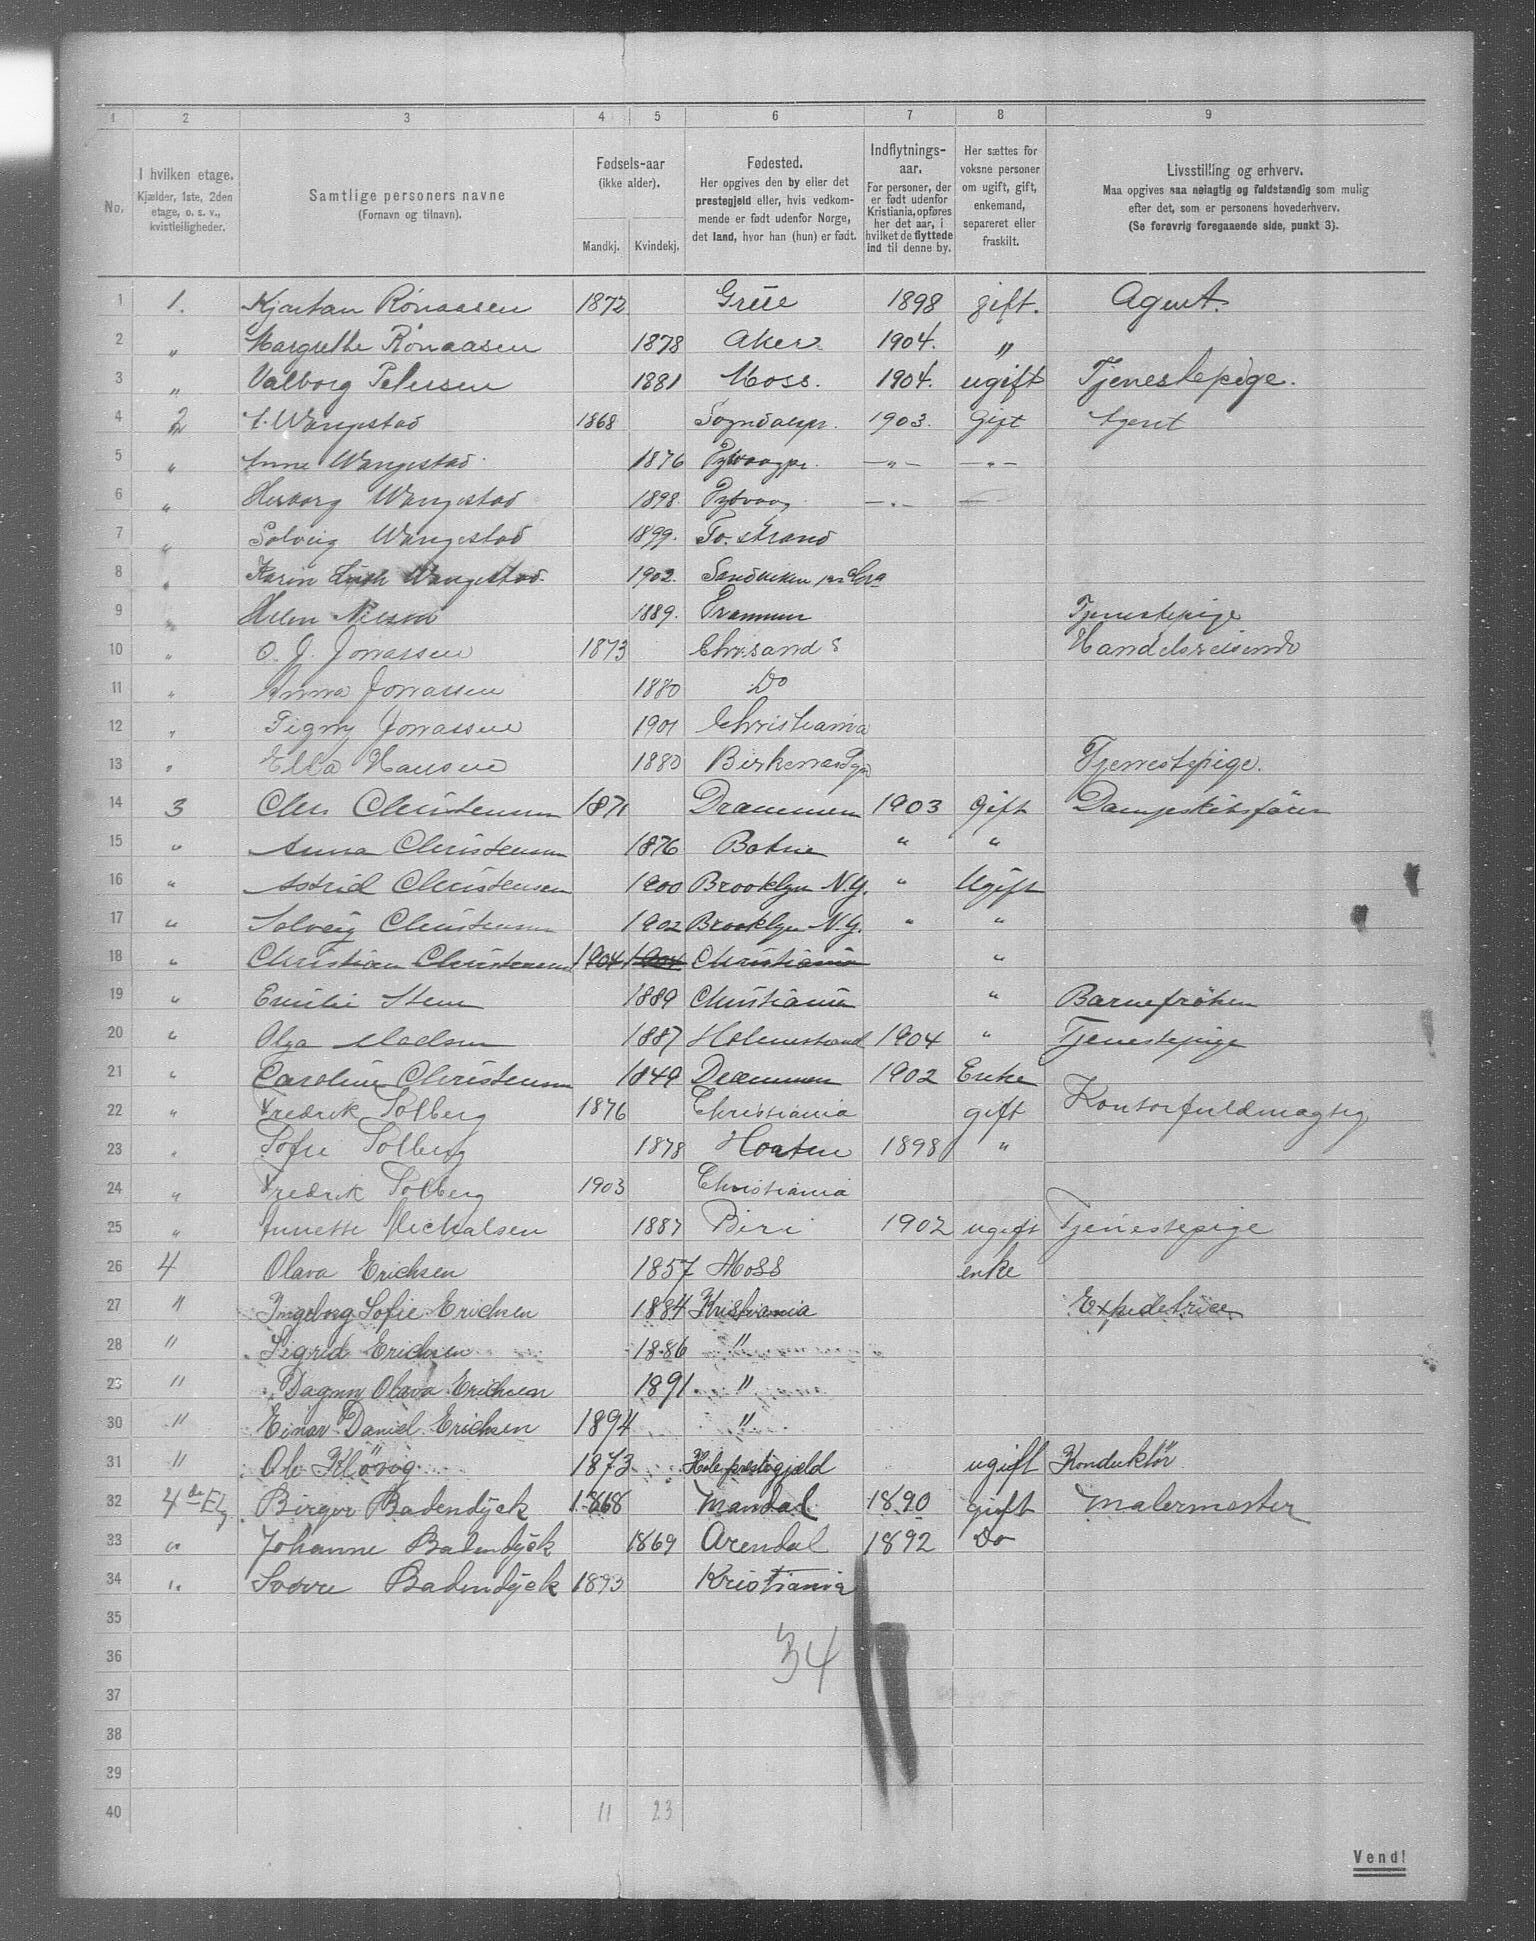 1 2 3 4 5 6 7 8 9
No. I hvilken etage. Kjælder, 1ste, 2den etage, o. s. v., kvistleiligheder. Samtlige personers navne (Fornavn og tilnavn). Fødsels-aar (ikke alder). Mandkj. Kvindekj. Fødested. Her opgives den by eller det prestegjeld eller, hvis vedkommende er født udenfor Norge, det land, hvor han (hun) er født. Indflytnings-aar. For personer, der er født udenfor Kristiania, opføres her det aar, i hvilket de flyttede ind til denne by. Her sættes for voksne personer om ugift, gift, enkemand, separeret eller fraskilt. Livsstilling og erhverv. Maa opgives saa nøiagtig og fuldstændig som mulig efter det, som er personens hovederhverv. (Se forøvrig foregaaende side, punkt 3).
1 1. Kjartan Rønaasen 1872 Grue 1898 gift. Agent.
2 " Margrethe Rønaasen 1878 Aker 1904. "
3 " Valborg Petersen 1881 Moss. 1904. ugift Tjenestepige.
4 2 Wangestad 1868 1903. Gift Agent
5 " Anne Wangestad 1876 —"— —"—
6 " Herborg Wangestad 1898. —"—
7 " Solveig Wangestad 1899. strand
8 " Karin Wangestad. 1902. Sandviken
9 " Nilsen 1889. Tjenestepige
10 " O. J. Jonassen 1873 Chr.sand S Handelsreisende
11 " Anna Jonassen 1880 Do
12 " Signy Jonassen 1901 Christiania
13 " Ella Hansen 1880 Birkenæs Tjenestepige.
14 3 Chr Christensen 1871 Drammen 1903 gift Dampskibsfører
15 " Anna Christensen 1876 Botne " "
16 " Astrid Christensen 1900 Brooklyn N.Y. " Ugift
17 " Solveig Christensen 1902 Brooklyn N.Y. " "
18 " Christian Christensen 1904 1904 Christiania "
19 " Emilie Steen 1889 Christiania " Barnefrøken
20 " Olga Madsen 1887 Holmestrand 1904 " Tjenestepige
21 " Caroline Christensen 1849 Drammen 1902 Enke
22 " Fredrik Solberg 1876 Christiania gift Kontorfuldmægtig
23 " Sofie Solberg 1878 1898 "
24 " Fredrik Solberg 1903 Christiania
25 " Annette Michalsen 1887 Biri 1902 ugift Tjenestepige
26 4 Olava Erichsen 1857 Moss enke
27 " Ingeborg Sofie Erichsen 1884 Kristiania Expeditrice
28 " Sigrid Erichsen 1886 "
29 " Dagny Olava Erichsen 1891 "
30 " Einar Daniel Erichsen 1894 "
31 " Ole Kløvig 1873 Hole prestegjæld ugift Konduktør
32 4de Etg Birger Badendyck 1868 Mandal 1890 gift Malermester
33 " Johanne Badendyck 1869 Arendal 1892 Do
34 " Sverre Badendyck 1893 Kristiania
35
36 34
37
38
39
40 11 23
Vend!